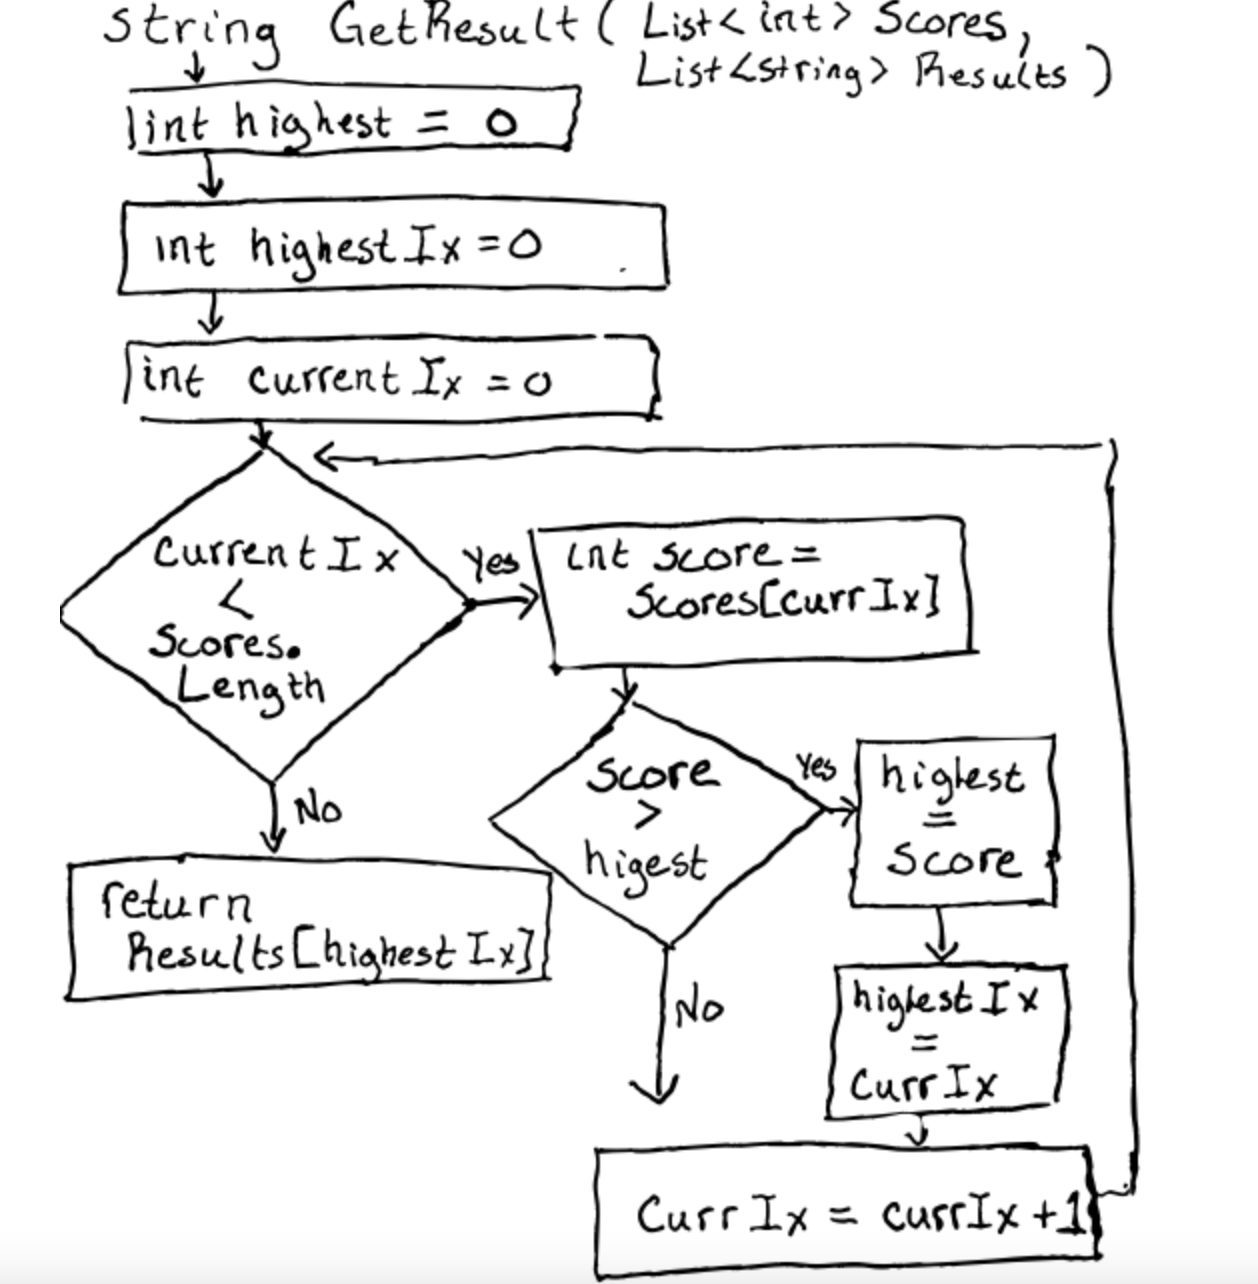 String GetResult( List<int> Scores,
List<string> Results )
int highest = 0
int highestIx = 0
int currentIx = 0
CurrentIx
<
Scores.
Length
Yes
int score =
Scores[currIx]
No
return
Results[highestIx]
Score
>
higest
Yes
highest
=
Score
No
highestIx
=
CurrIx
CurrIx = currIx +1